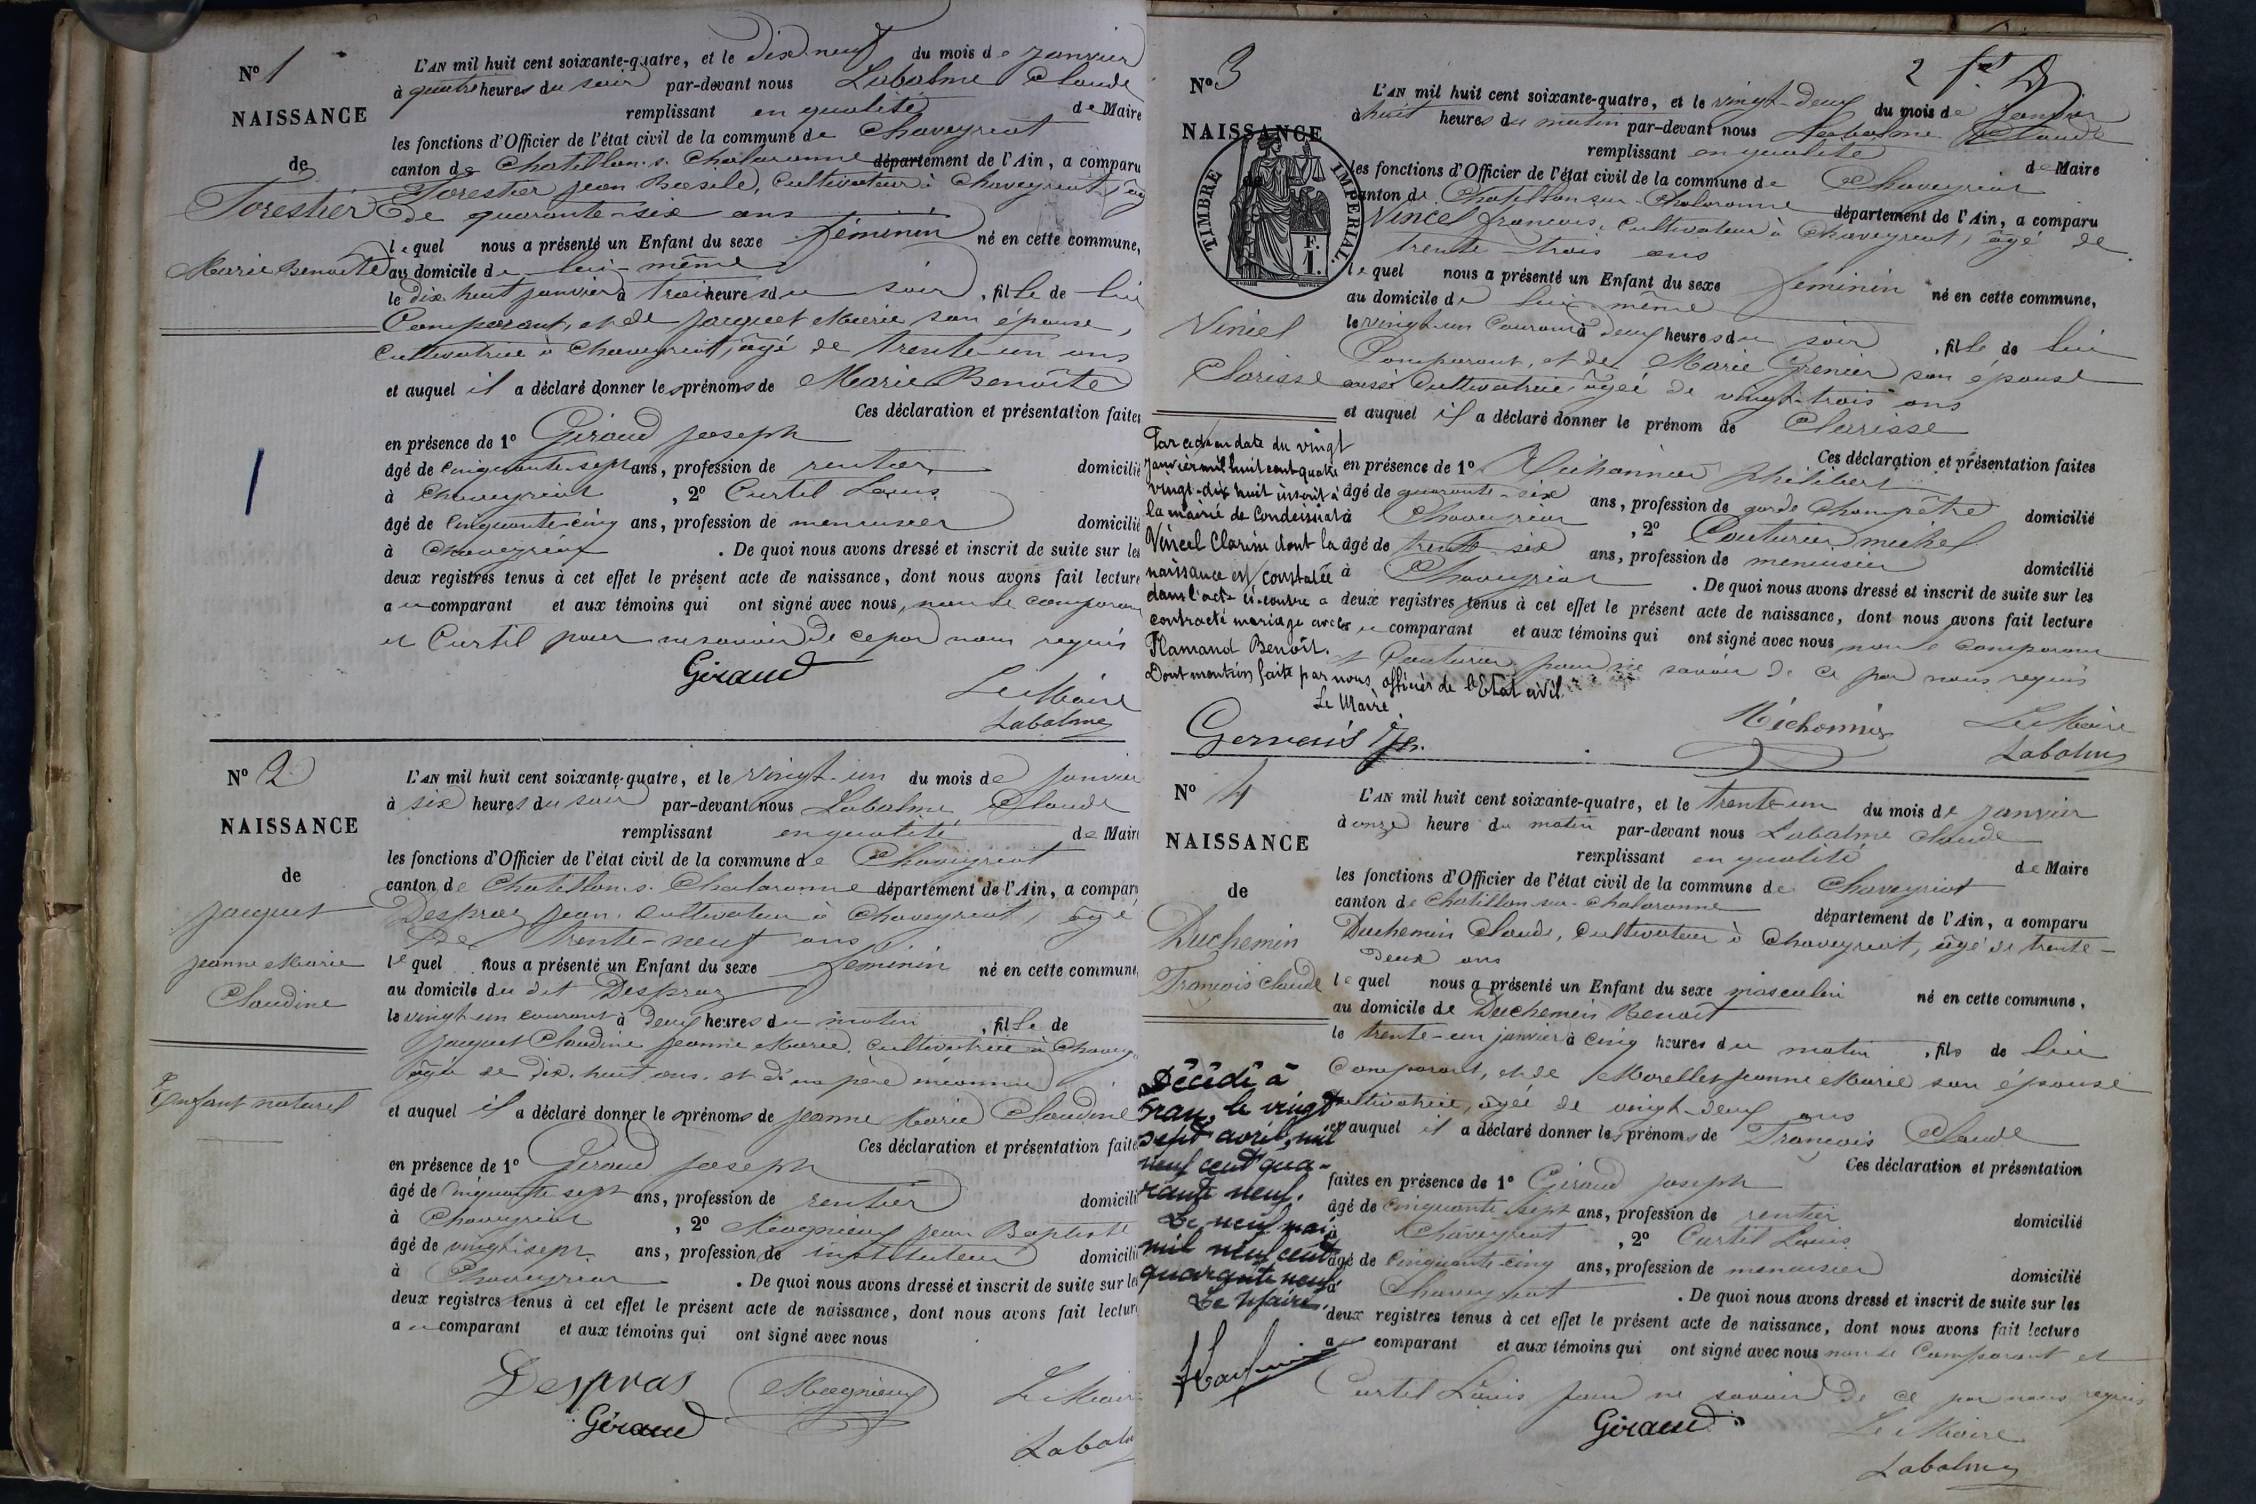 N° 1
NAISSANCE
de
Forestier
Marie Benoîte
L'AN mil huit cent soixante-quatre, et le dix neuf du mois de janvier
à quatre heures du soir par-devant nous Labalme Claude
remplissant en qualité de Maire
les fonctions d'Officier de l'état civil de la commune de Chaveyriat
canton de Chatillon s. Chalaronne département de l'Ain, a comparu
Forestier Jean Basile, Cultivateur à Chaveyriat, âgé
de quarante-six ans
lequel nous a présenté un Enfant du sexe féminin né en cette commune,
au domicile de lui-même
le dix huit janvier à trois heures du soir, fille de lui
Comparant, et de Jacquet Marie son épouse,
Cultivatrice à Chaveyriat, âgé de trente un ans
et auquel il a déclaré donner les prénoms de Marie Benoîte
Ces déclaration et présentation faites
en présence de 1° Giraud Joseph
âgé de cinquante-sept ans, profession de rentier domicilié
à Chaveyriat, 2° Curtil Louis
âgé de Cinquante-cinq ans, profession de menuisier domicilié
à Chaveyriat. De quoi nous avons dressé et inscrit de suite sur les
deux registres tenus à cet effet le présent acte de naissance, dont nous avons fait lecture
au comparant et aux témoins qui ont signé avec nous, non le comparant
et Curtil pour ne savoir de ce par nous requis
Giraud
Le Maire
Labalme
N° 2
NAISSANCE
de
Jacquet
Jeanne Marie
Claudine
Enfant naturel
L'AN mil huit cent soixante-quatre, et le vingt-un du mois de janvier
à six heures du soir par-devant nous Labalme Claude
remplissant en qualité de Maire
les fonctions d'Officier de l'état civil de la commune de Chaveyriat
canton de Chatillon s. Chalaronne département de l'Ain, a comparu
Despraz Jean, Cultivateur à Chaveyriat, âgé
de trente-neuf ans
lequel nous a présenté un Enfant du sexe féminin né en cette commune,
au domicile du dit Despraz
le vingt un courant à deux heures du matin, fille de
Jacquet Claudine Jeanne Marie, cultivatrice à Chavey
âgée de dix-huit ans, et d'un père inconnu
et auquel il a déclaré donner les prénoms de Jeanne Marie Claudine
Ces déclaration et présentation faites
en présence de 1° Giraud Joseph
âgé de cinquante sept ans, profession de rentier domicilié
à Chaveyriat, 2° Magnieux Jean Baptiste
âgé de vingt sept ans, profession de instituteur domicilié
à Chaveyriat. De quoi nous avons dressé et inscrit de suite sur les
deux registres tenus à cet effet le présent acte de naissance, dont nous avons fait lecture
au comparant et aux témoins qui ont signé avec nous
Despras
Magnieux
Giraud
Le Maire
Labalme
2
N° 3
NAISSANCE
de
TIMBRE IMPERIAL
F.
1.
Vincel
Clarisse
L'AN mil huit cent soixante-quatre, et le vingt-deux du mois de Janvier
à huit heures du matin par-devant nous Labalme Claude
remplissant en qualité de Maire
les fonctions d'Officier de l'état civil de la commune de Chaveyriat
canton de Chatillon sur Chalaronne département de l'Ain, a comparu
Vincel françois, Cultivateur à Chaveyriat, âgé de
trente-trois ans
lequel nous a présenté un Enfant du sexe féminin né en cette commune,
au domicile de lui-même
le vingt-un Courant à deux heures du soir, fille de lui
Comparant, et de Marie Grenier son épouse
aussi Cultivatrice, âgée de vingt-trois ans
et auquel il a déclaré donner le prénom de Clarisse
Ces déclaration et présentation faites
en présence de 1° Michonnier philibert
âgé de quarante-six ans, profession de garde Champêtre domicilié
à Chaveyriat, 2° Couturier michel
âgé de trente-six ans, profession de menuisier domicilié
à Chaveyriat. De quoi nous avons dressé et inscrit de suite sur les
deux registres tenus à cet effet le présent acte de naissance, dont nous avons fait lecture
au comparant et aux témoins qui ont signé avec nous non le comparant
et Couturier pour ne savoir de ce par nous requis
Par acte en date du vingt
janvier mil huit cent quatre
vingt-dix huit inscrit à
la mairie de Condeissiat
Vincel Clarisse dont la
naissance est constatée
dans l'acte ci-contre a
contracté mariage avec
Flamand Benoît.
Dont mention faite par nous officier de l'Etat civil
Le Maire
Gervais
Michonnier
Le Maire
Labalme
N° 4
NAISSANCE
de
Duchemin
François Claude
L'AN mil huit cent soixante-quatre, et le trente-un du mois de janvier
à onze heure du matin par-devant nous Labalme Claude
remplissant en qualité de Maire
les fonctions d'Officier de l'état civil de la commune de Chaveyriat
canton de Chatillon-sur-Chalaronne département de l'Ain, a comparu
Duchemin Claude, Cultivateur à Chaveyriat, âgé de trente-
deux ans
lequel nous a présenté un Enfant du sexe masculin né en cette commune,
au domicile de Duchemin Benoit
le trente-un janvier à cinq heures du matin, fils de lui
Comparant, et de Morellet Jeanne Marie son épouse
Cultivatrice, âgée de vingt-deux ans
et auquel il a déclaré donner les prénoms de François Claude
Ces déclaration et présentation
faites en présence de 1° Giraud Joseph
âgé de cinquante-sept ans, profession de rentier domicilié
à Chaveyriat, 2° Curtil Louis
âgé de Cinquante-cinq ans, profession de menuisier domicilié
à Chaveyriat. De quoi nous avons dressé et inscrit de suite sur les
deux registres tenus à cet effet le présent acte de naissance, dont nous avons fait lecture
a comparant et aux témoins qui ont signé avec nous non le Comparant et
Curtil Louis pour ne savoir de ce par nous requis
Décédé à
le vingt
sept avril, mil
neuf cent qua-
rante neuf.
Le neuf mai
mil neuf cent
quarante neuf
Le Maire,
Giraud
Le Maire
Labalme